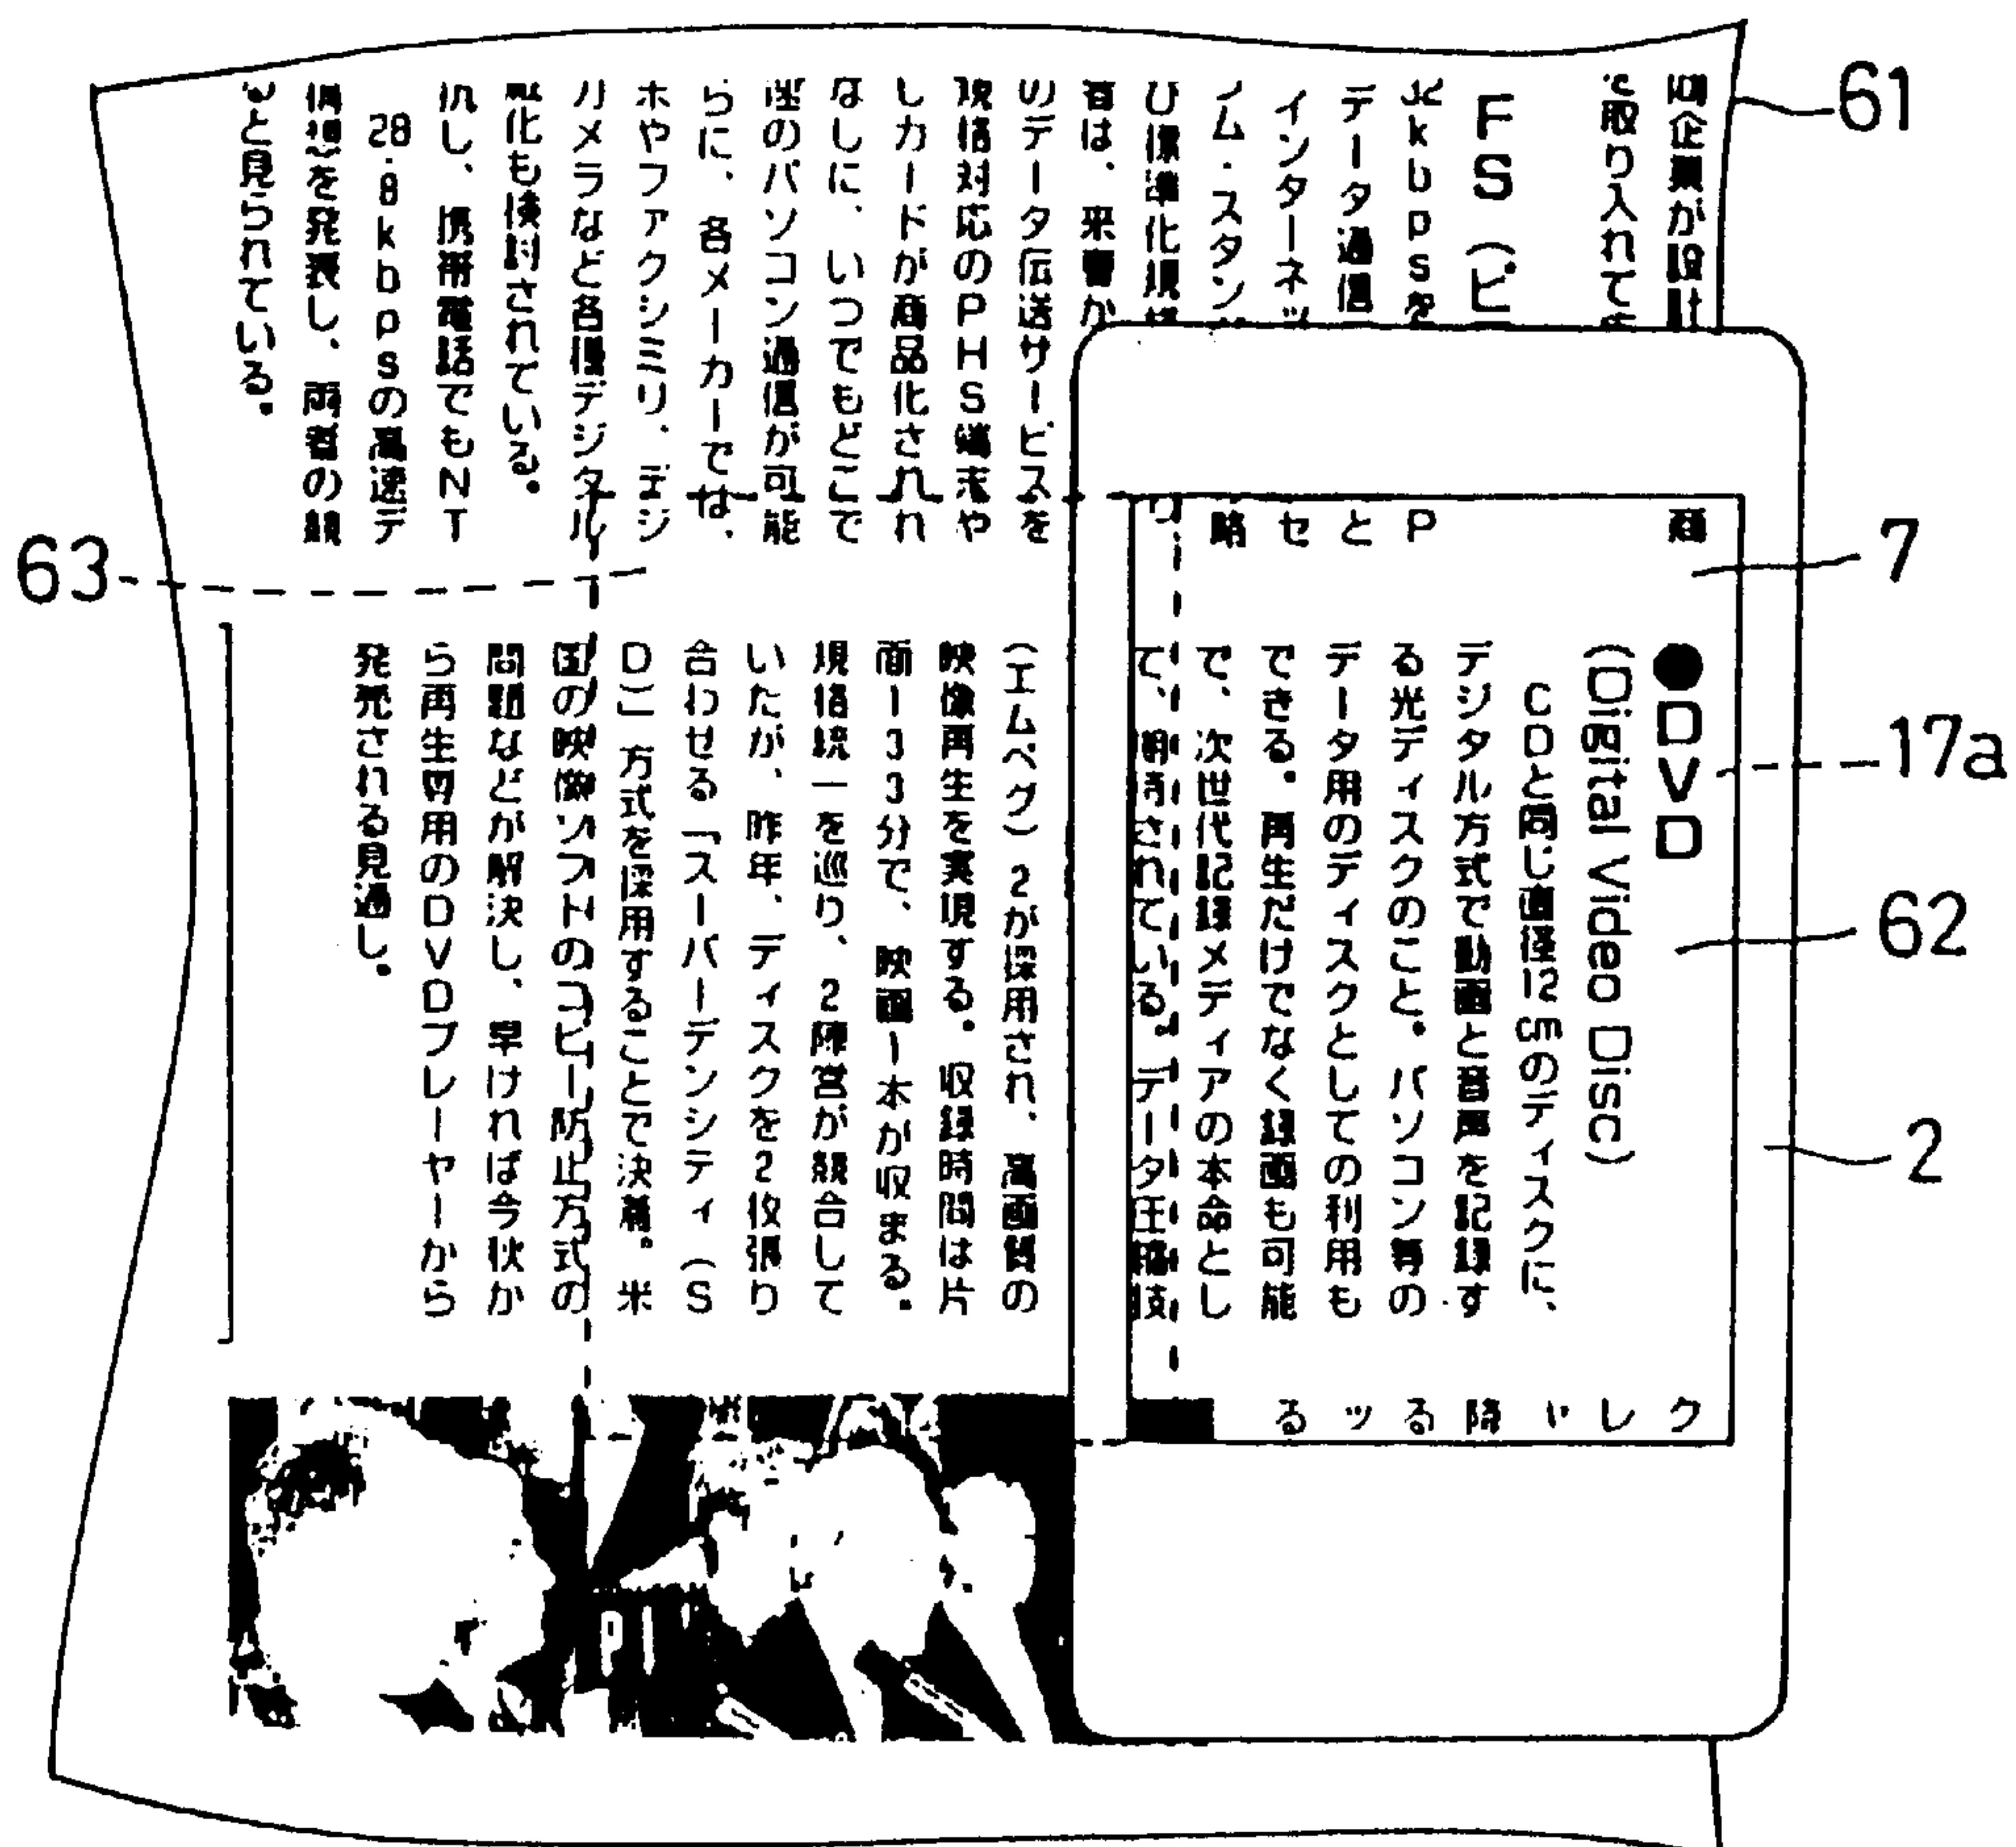 企業が設計
取り入れて
FS（ビ
32kbpsを
データ通信
インターネッ
イム・スタン
標準化規格
者は、来春か
のデータ伝送サービスを
規格対応のPHS端末や
しカードが商品化されれ
なしに、いつでもどこで
のパソコン通信が可能
らに、各メーカーでは、
ホやファクシミリ、デジ
カメラなど各種デジタル
化も検討されている。
抗し、携帯電話でもNT
28.8kbpsの高速デ
構想を発表し、両者の競
ると見られている。
商
P
と
セ
略
り
●DVD
（Digital Video Disc）
CDと同じ直径12cmのディスクに、
デジタル方式で動画と音声を記録す
る光ディスクのこと。パソコン等の
データ用のディスクとしての利用も
できる。再生だけでなく録画も可能
で、次世代記録メディアの本命とし
て、期待されている。データ圧縮技
（エムペグ）2が採用され、高画質の
映像再生を実現する。収録時間は片
面133分で、映画1本が収まる。
規格統一を巡り、2陣営が競合して
いたが、昨年、ディスクを2枚張り
合わせる「スーパーデンシティ（S
D）」方式を採用することで決着。米
国の映像ソフトのコピー防止方式の
問題などが解決し、早ければ今秋か
ら再生専用のDVDプレーヤーから
発売される見通し。
ク
レ
降
る
ッ
る
61
7
17a
62
2
63